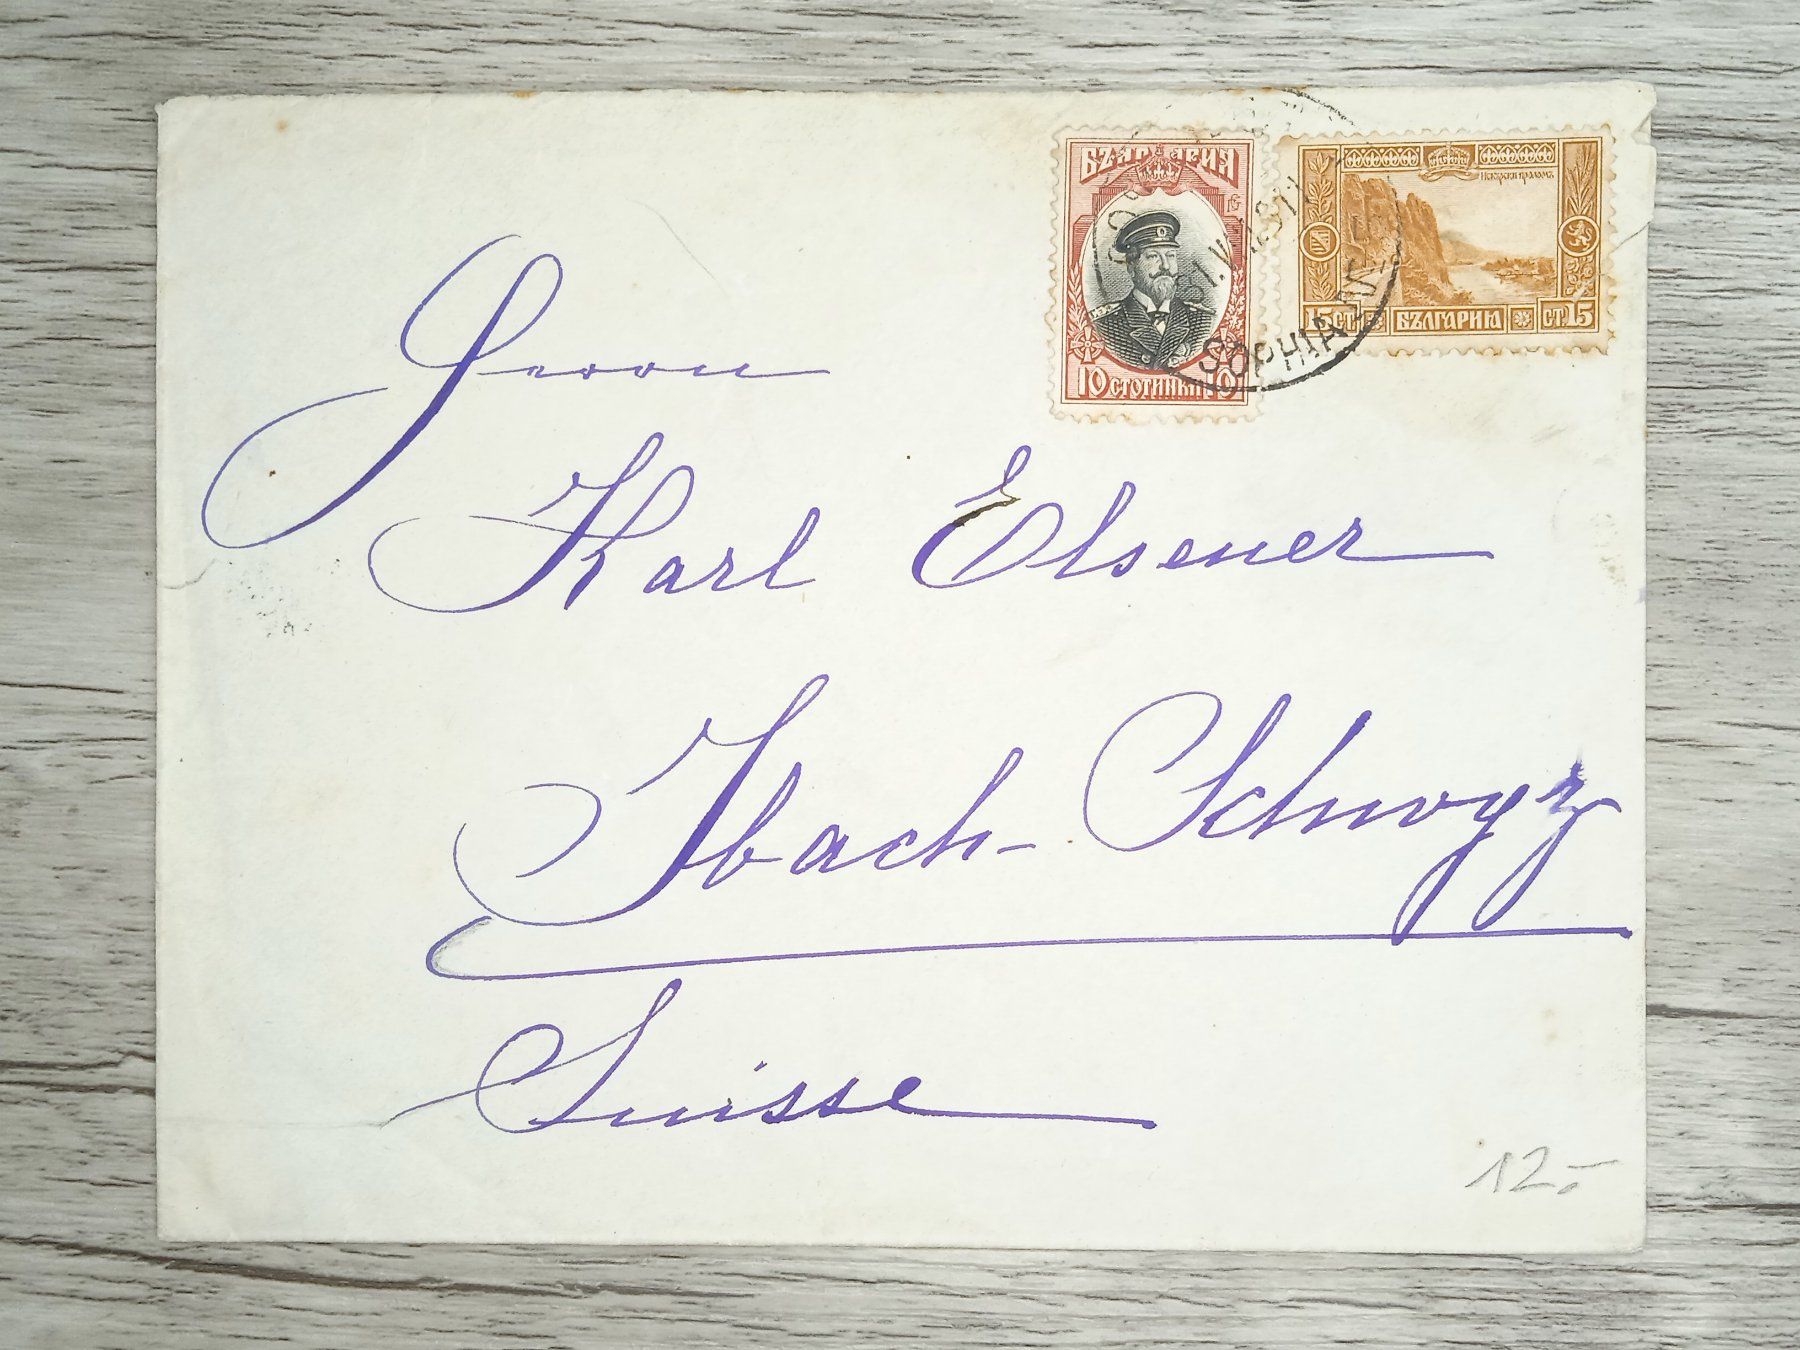 БЪЛГАРИЯ
10 СТОТИНКИ 10
Искърски проломъ
15 СТ. БЪЛГАРИЯ СТ. 15
SOPHIA
Herrn
Karl Elsener
Ibach-Schwyz
Suisse
12.-